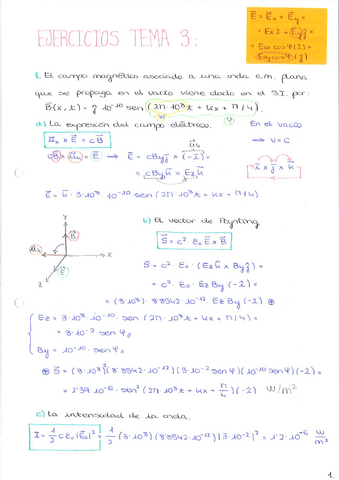 EJERCICIOS TEMA 3:
E⃗ = E⃗x + E⃗y =
= Ex î + E⃗y ĵ =
1. El campo magnético asociado a una onda e.m. plana
que se propaga en el vacío viene dado en el S.I. por:
B⃗(x,t) = ĵ 10⁻¹⁰ sen (2π·10⁸t + kx + π/4).
w
φ
a) La expresión del campo eléctrico.
En el vacío
→ v = c
u⃗s × E⃗ = cB⃗
cB⃗ × u⃗s = E⃗ → E⃗ = cBy ĵ × (-î) =
u⃗s
= cBy k⃗ = Ez k⃗
î × ĵ × k⃗
E⃗ = k⃗ · 3·10⁸ · 10⁻¹⁰ sen (2π·10⁸t + kx + π/4)
Y
B⃗
u⃗s
X
E⃗
Z
b) El vector de Poynting
S⃗ = c² · ε₀ E⃗ × B⃗
S⃗ = c² · ε₀ · (Ez k⃗ × By ĵ) =
= c² · ε₀ · Ez By (-î) =
= (3·10⁸)² · 8'8542·10⁻¹² · Ez By (-î) =
Ez = 3·10⁸ · 10⁻¹⁰ · sen (2π·10⁸t + kx + π/4) =
= 3·10⁻² sen φ
By = 10⁻¹⁰ · sen φ
S⃗ = (3·10⁸)² (8'8542·10⁻¹²) (3·10⁻² sen φ) (10⁻¹⁰ sen φ) (-î) =
sen² (2π·10⁸t + kx + π/4) (-î) W/m²
c) La intensidad de la onda.
I = 1/2 c ε₀ |E⃗₀|² = 1/2 (3·10⁸) (8'8542·10⁻¹²) |3·10⁻²|² = 1'2·10⁻⁶ W/m²
1.